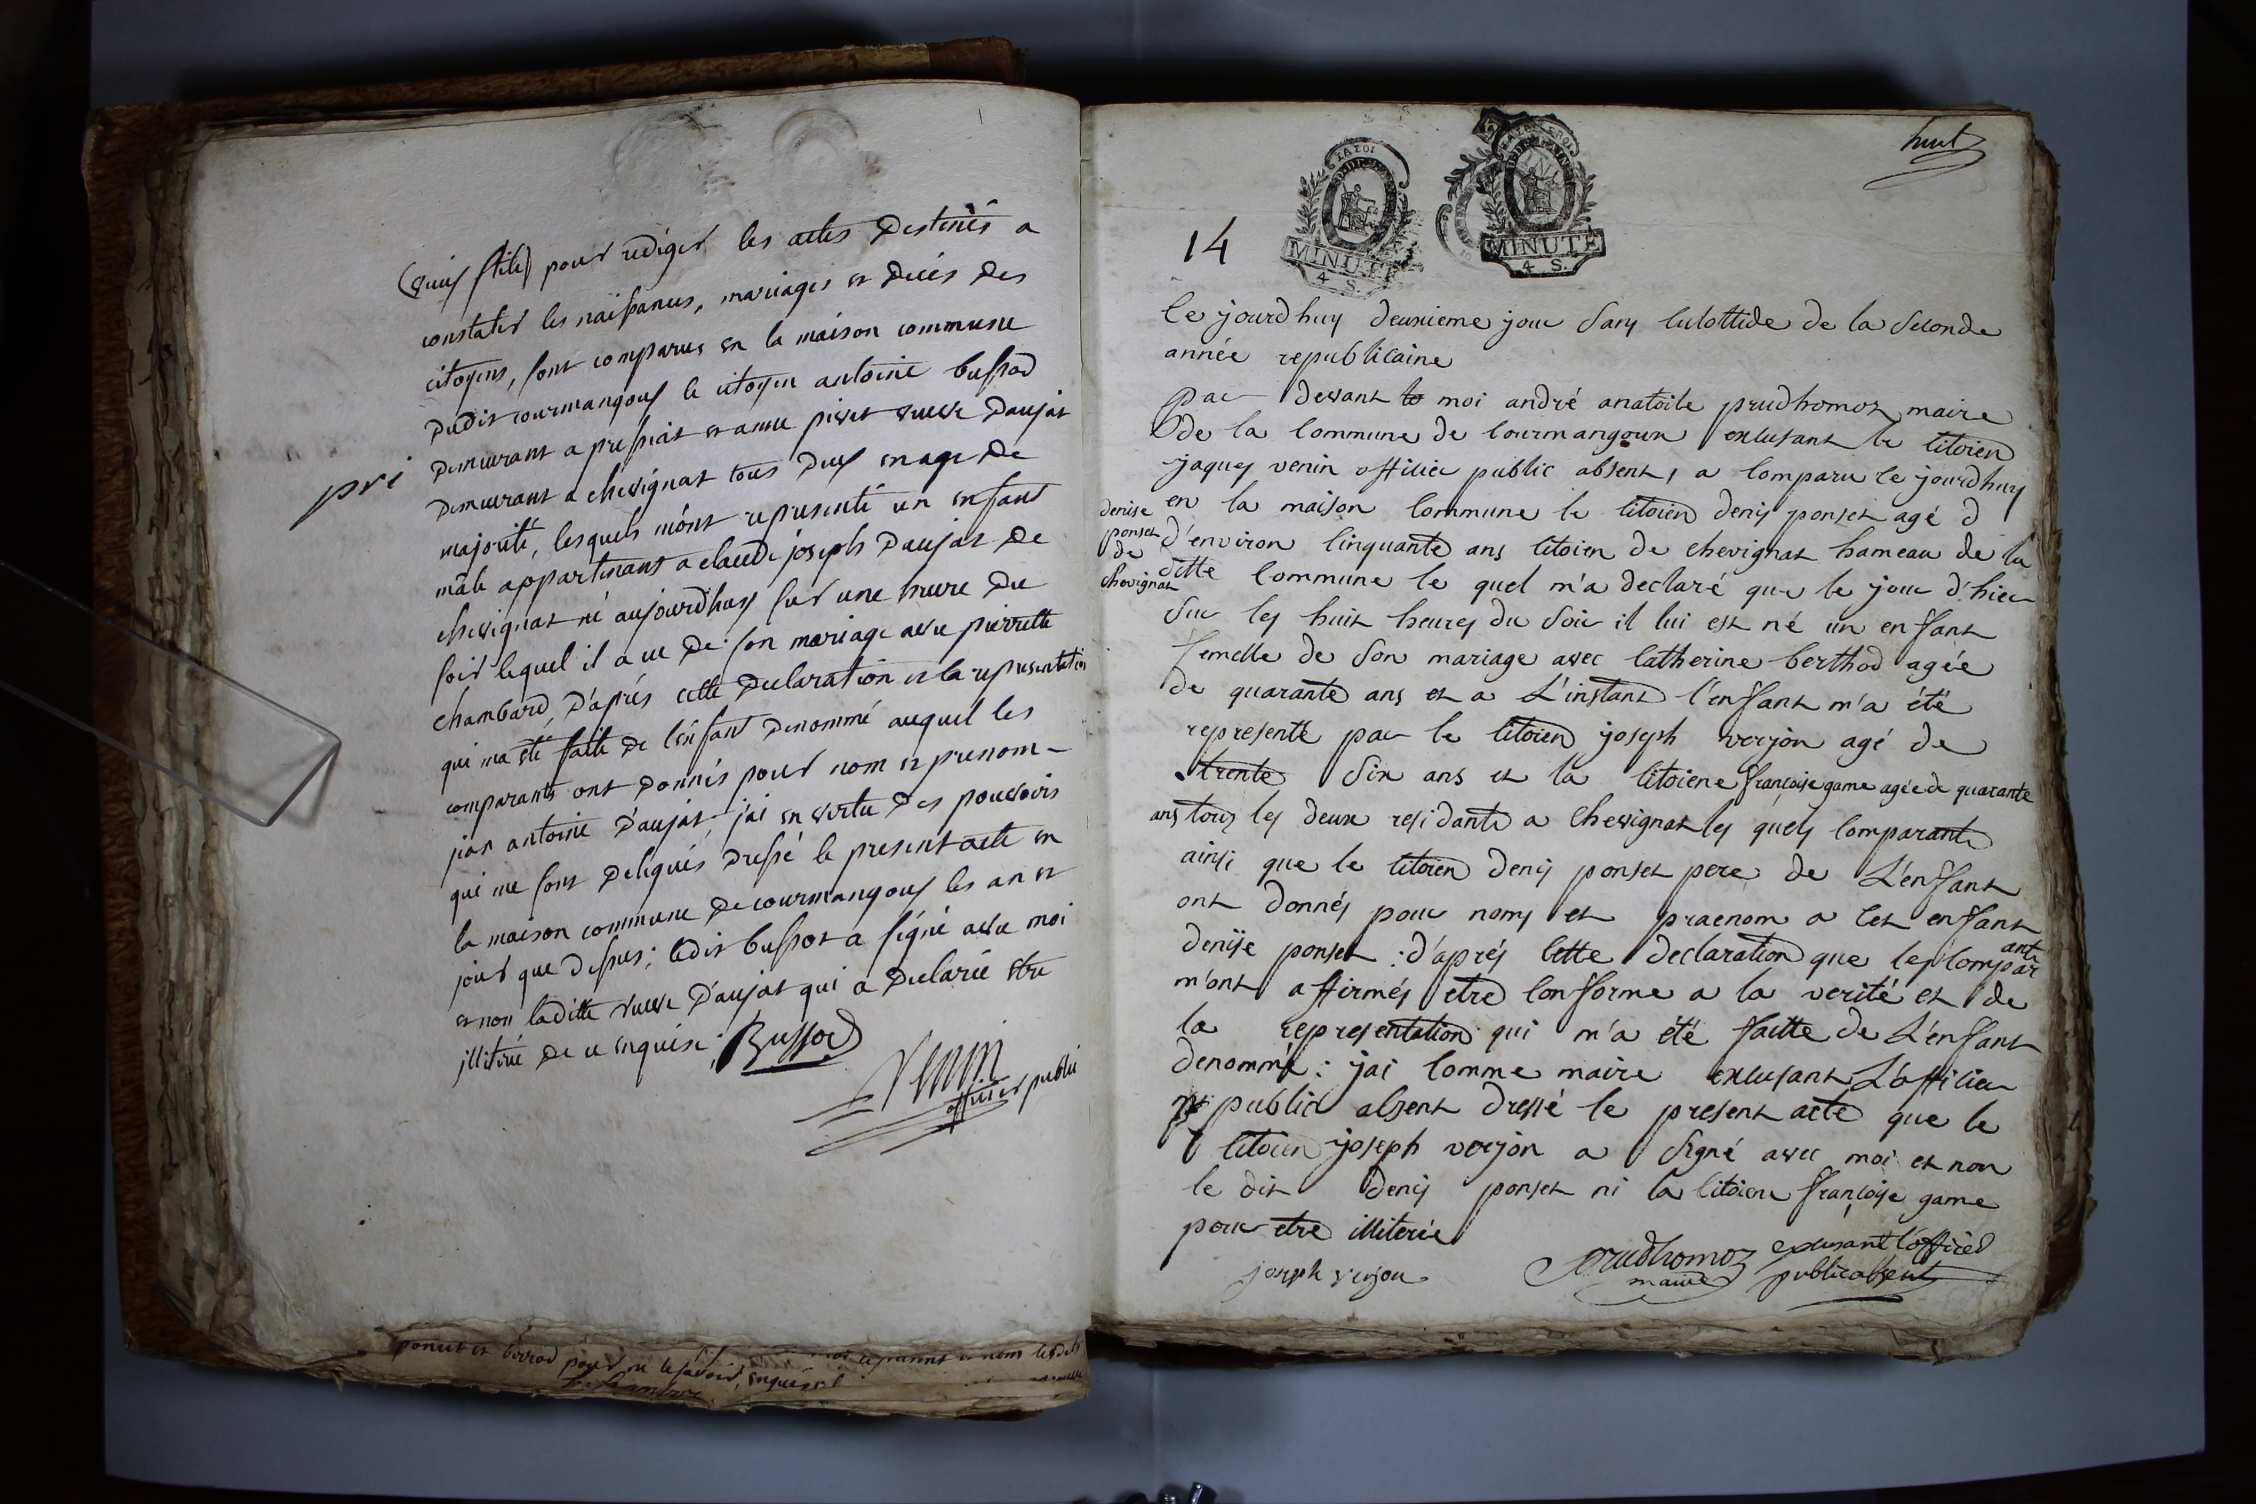 (vieux stile) pour rediger les actes destinés a
constater les naissances, mariages et décés des
citoyens, sont comparus en la maison commune
dudit courmangoux le citoyen antoine bussod
demeurant a pressiat et anne pivet veuve daujat
demeurant a chevignat tous deux en age de
majorité, lesquels m'ont representé un enfant
mâle appartenant a claude joseph daujat de
chevignat né aujourdhuy sur une heure du
soir lequel il a eu de son mariage avec pierrette
chambard, d'aprés cette declaration et la representation
qui ma été faite de l'enfant denommé auquel les
comparants ont donnés pour nom et prenom
jean antoine daujat, j'ai en vertu des pouvoirs
qui me sont delegués, dressé le present acte en
la maison commune de courmangoux les an et
jour que dessus; ledit bussot a signé avec moi
et non laditte veuve d'aujat qui a declarée etre
illiteré de ce enquise. Bussod
Venin
officier public
pri
ponet et berrod pour ne le savoir, enquis
huit
MINUTE
4 S.
MINUTE
4 S.
14
Ce jourdhuy deuxieme jour sans culottide de la seconde
année republicaine
par devant le moi andré anatoile prudhomoz maire
de la commune de courmangoux excusant le citoien
jaques venin officier public absent, a comparu ce jourdhuy
en la maison commune le citoien denis ponset agé d
d'environ cinquante ans citoien de chevignat hameau de la
ditte commune le quel m'a declaré que le jour d'hier
denise
ponset
de
chevignat
sur les huit heures du soir il lui est né un enffant
femelle de son mariage avec catherine berthod agée
de quarante ans et a L'instant l'enffant m'a été
representé par le citoien joseph verjon agé de
trente six ans et la citoiene françoise game agée de quarante
ans tous les deux residants a chevignat les quels comparants
ainsi que le citoien denis ponset pere de L'enffant
ont donnés pour noms et praenom a cet enffant
denise ponset : d'aprés cette declaration que les compar
ants
m'ont affirmés etre conforme a la verité et de
la representation qui m'a été faitte de L'enffant
denommé : jai comme maire excusant L'officier
public absent dressé le present acte que le
citoien joseph verjon a signé avec moi et non
le dit denis ponset ni la citoiene françoise game
pour etre illiterée
joseph verjon
prudhomoz
maire
excusant l'officier
public absent